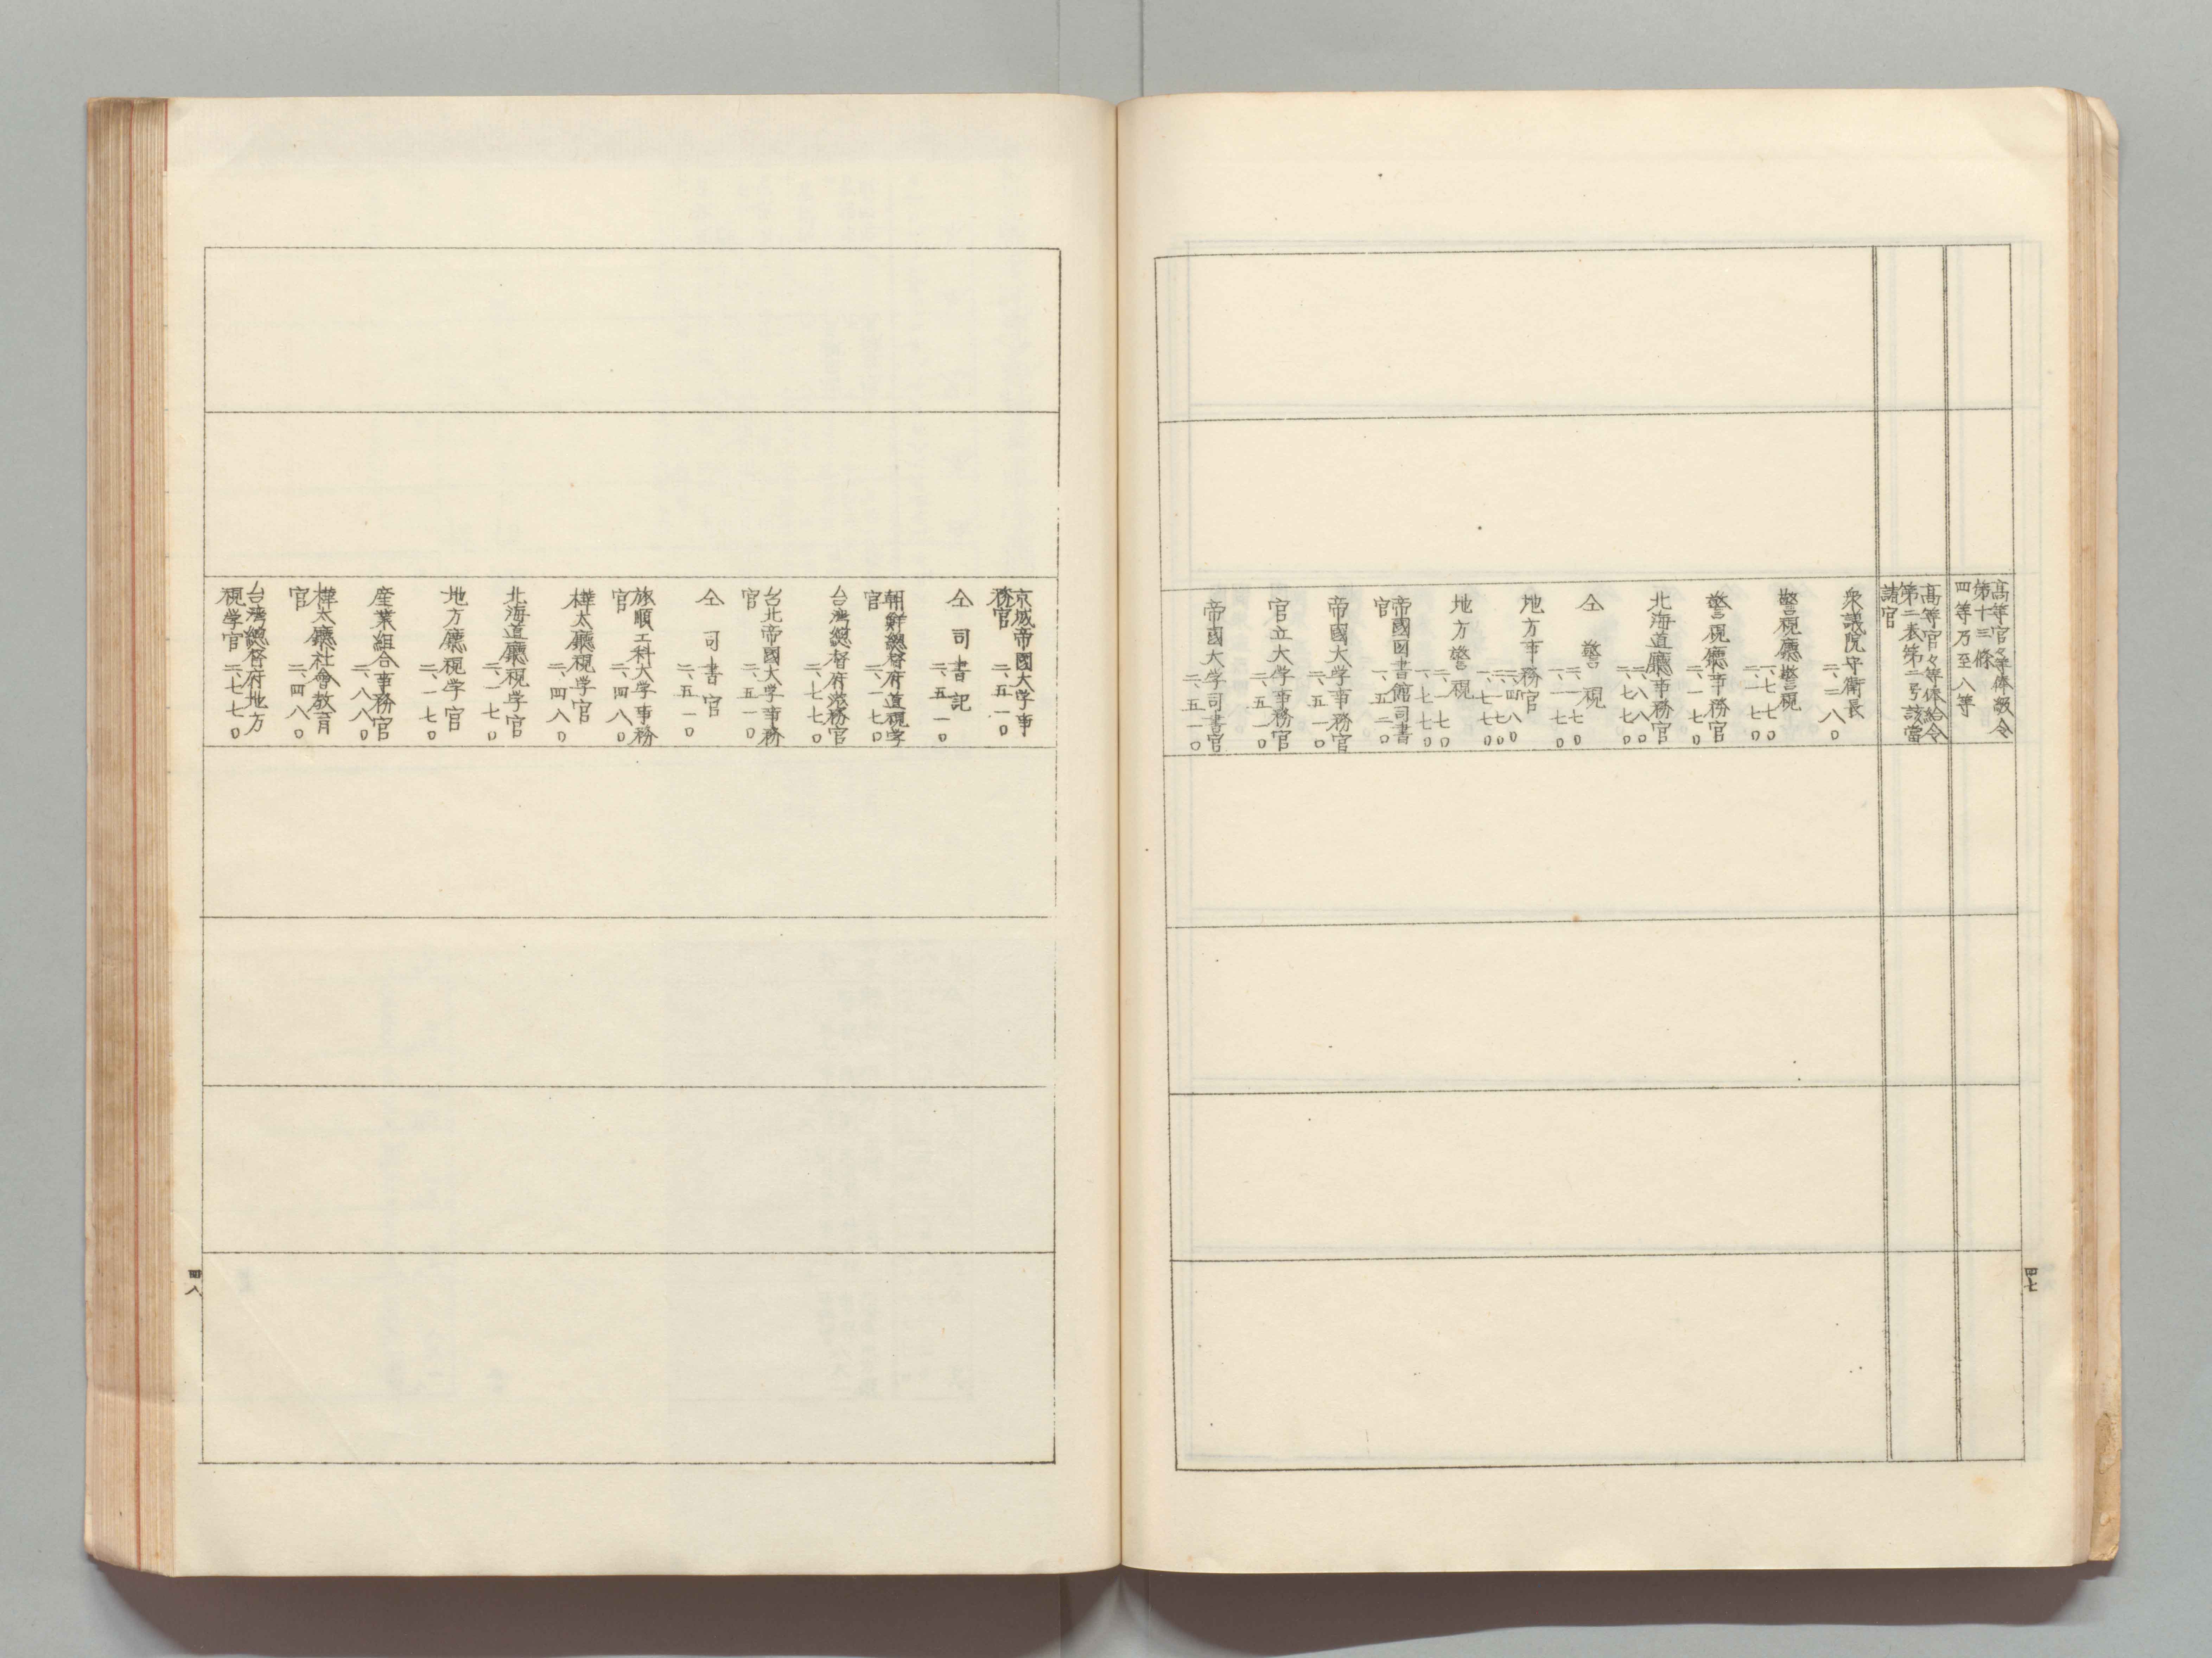 高等官々等俸級令
第十三條
四等乃至八等
高等官々等俸給令
第二表第二号該當
諸官
衆議院守衛長
二、二八〇
警視廳警視
一、七七〇
二、一七〇
警視廳事務官
二、一七〇
北海道廳事務官
二、八八〇
二、七七〇
仝 警視
二、一七〇
一、一七〇
地方事務官
二、四八〇
二、一七〇
一、七七〇
地方警視
二、一七〇
一、七七〇
帝國図書館司書
官
一、五二〇
帝國大学事務官
二、五一〇
官立大学事務官
二、五一〇
帝國大学司書官
二、五一〇
四七
京城帝國大学事
務官
二、五一〇
仝 司書記
二、五一〇
朝鮮總督府道視学
官
二、一七〇
台湾總督府港務官
二、七七〇
台北帝國大学事務
官
二、五一〇
仝 司書官
二、五一〇
旅順工科大学事務
官
二、四八〇
樺太廳視学官
二、四八〇
北海道廳視学官
二、一七〇
地方廳視学官
二、一七〇
産業組合事務官
二、八八〇
樺太廳社會教育
官
二、四八〇
台湾總督府地方
視学官
二、七七〇
四八